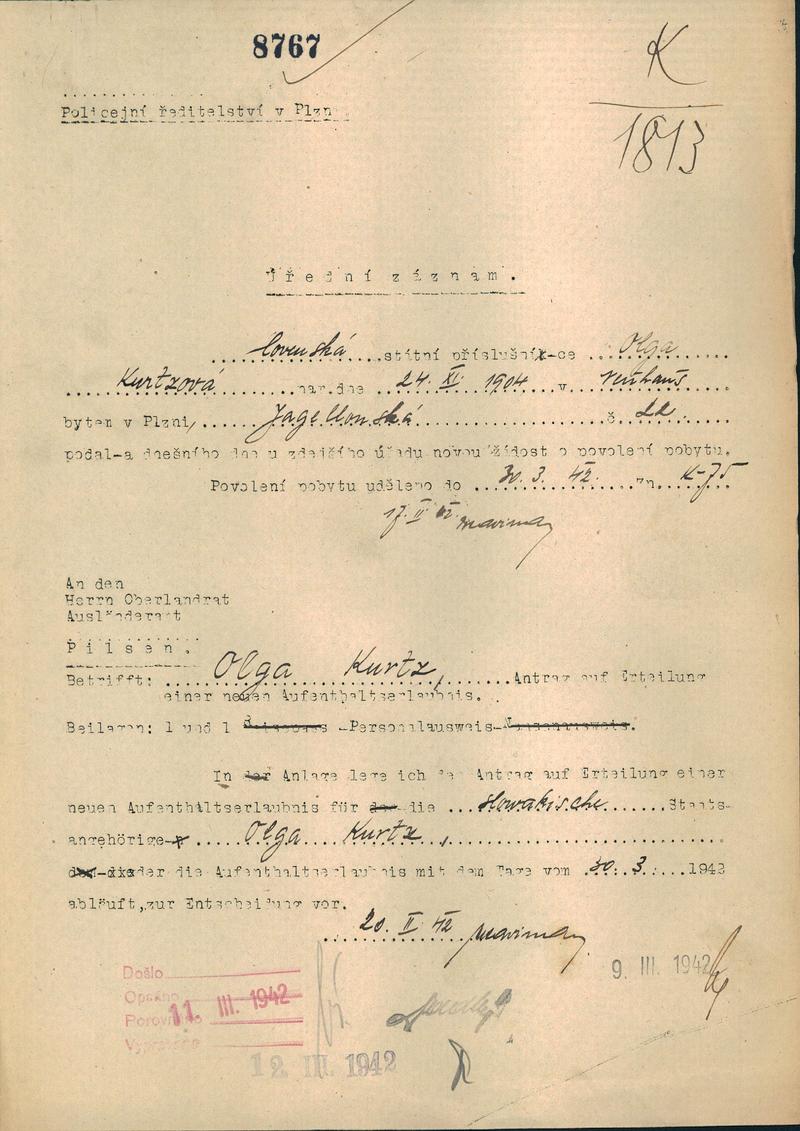 8767
K
1813
Policejní ředitelství v Plzn
Úřední záznam.
slovenská státní příslušník-ce Olga
Kurtzová nar.dne 24. XI. 1904 v Neuhaus
bytem v Plzni, Jagellonská č. 22
podal-a dnešního dne u zdejšího úřadu novou žádost o povolení pobytu.
Povolení pobytu uděleno do 30. 3. 42. zn. K-75
17. II 42
An den
Herrn Oberlandrat
Ausländeramt
Pilsen.
Betrifft: Olga Kurtz, Antrag auf Erteilung
einer neuen Aufenthaltserlaubnis.
Beilagen: 1 und 1 Reisepass -Personalausweis-
In der Anlage lege ich den Antrag auf Erteilung einer
neuen Aufenthaltserlaubnis für der die slowakische Staats-
angehörige-r Olga Kurtz,
der die Aufenthaltserlaubnis mit dem Tage vom 30. 3. 1942
abläuft, zur Entscheidung vor.
20. II 42
9. III. 1942
Došlo
Opsáno
11. III. 1942
Porovnáno
Vypraveno
12. III. 1942